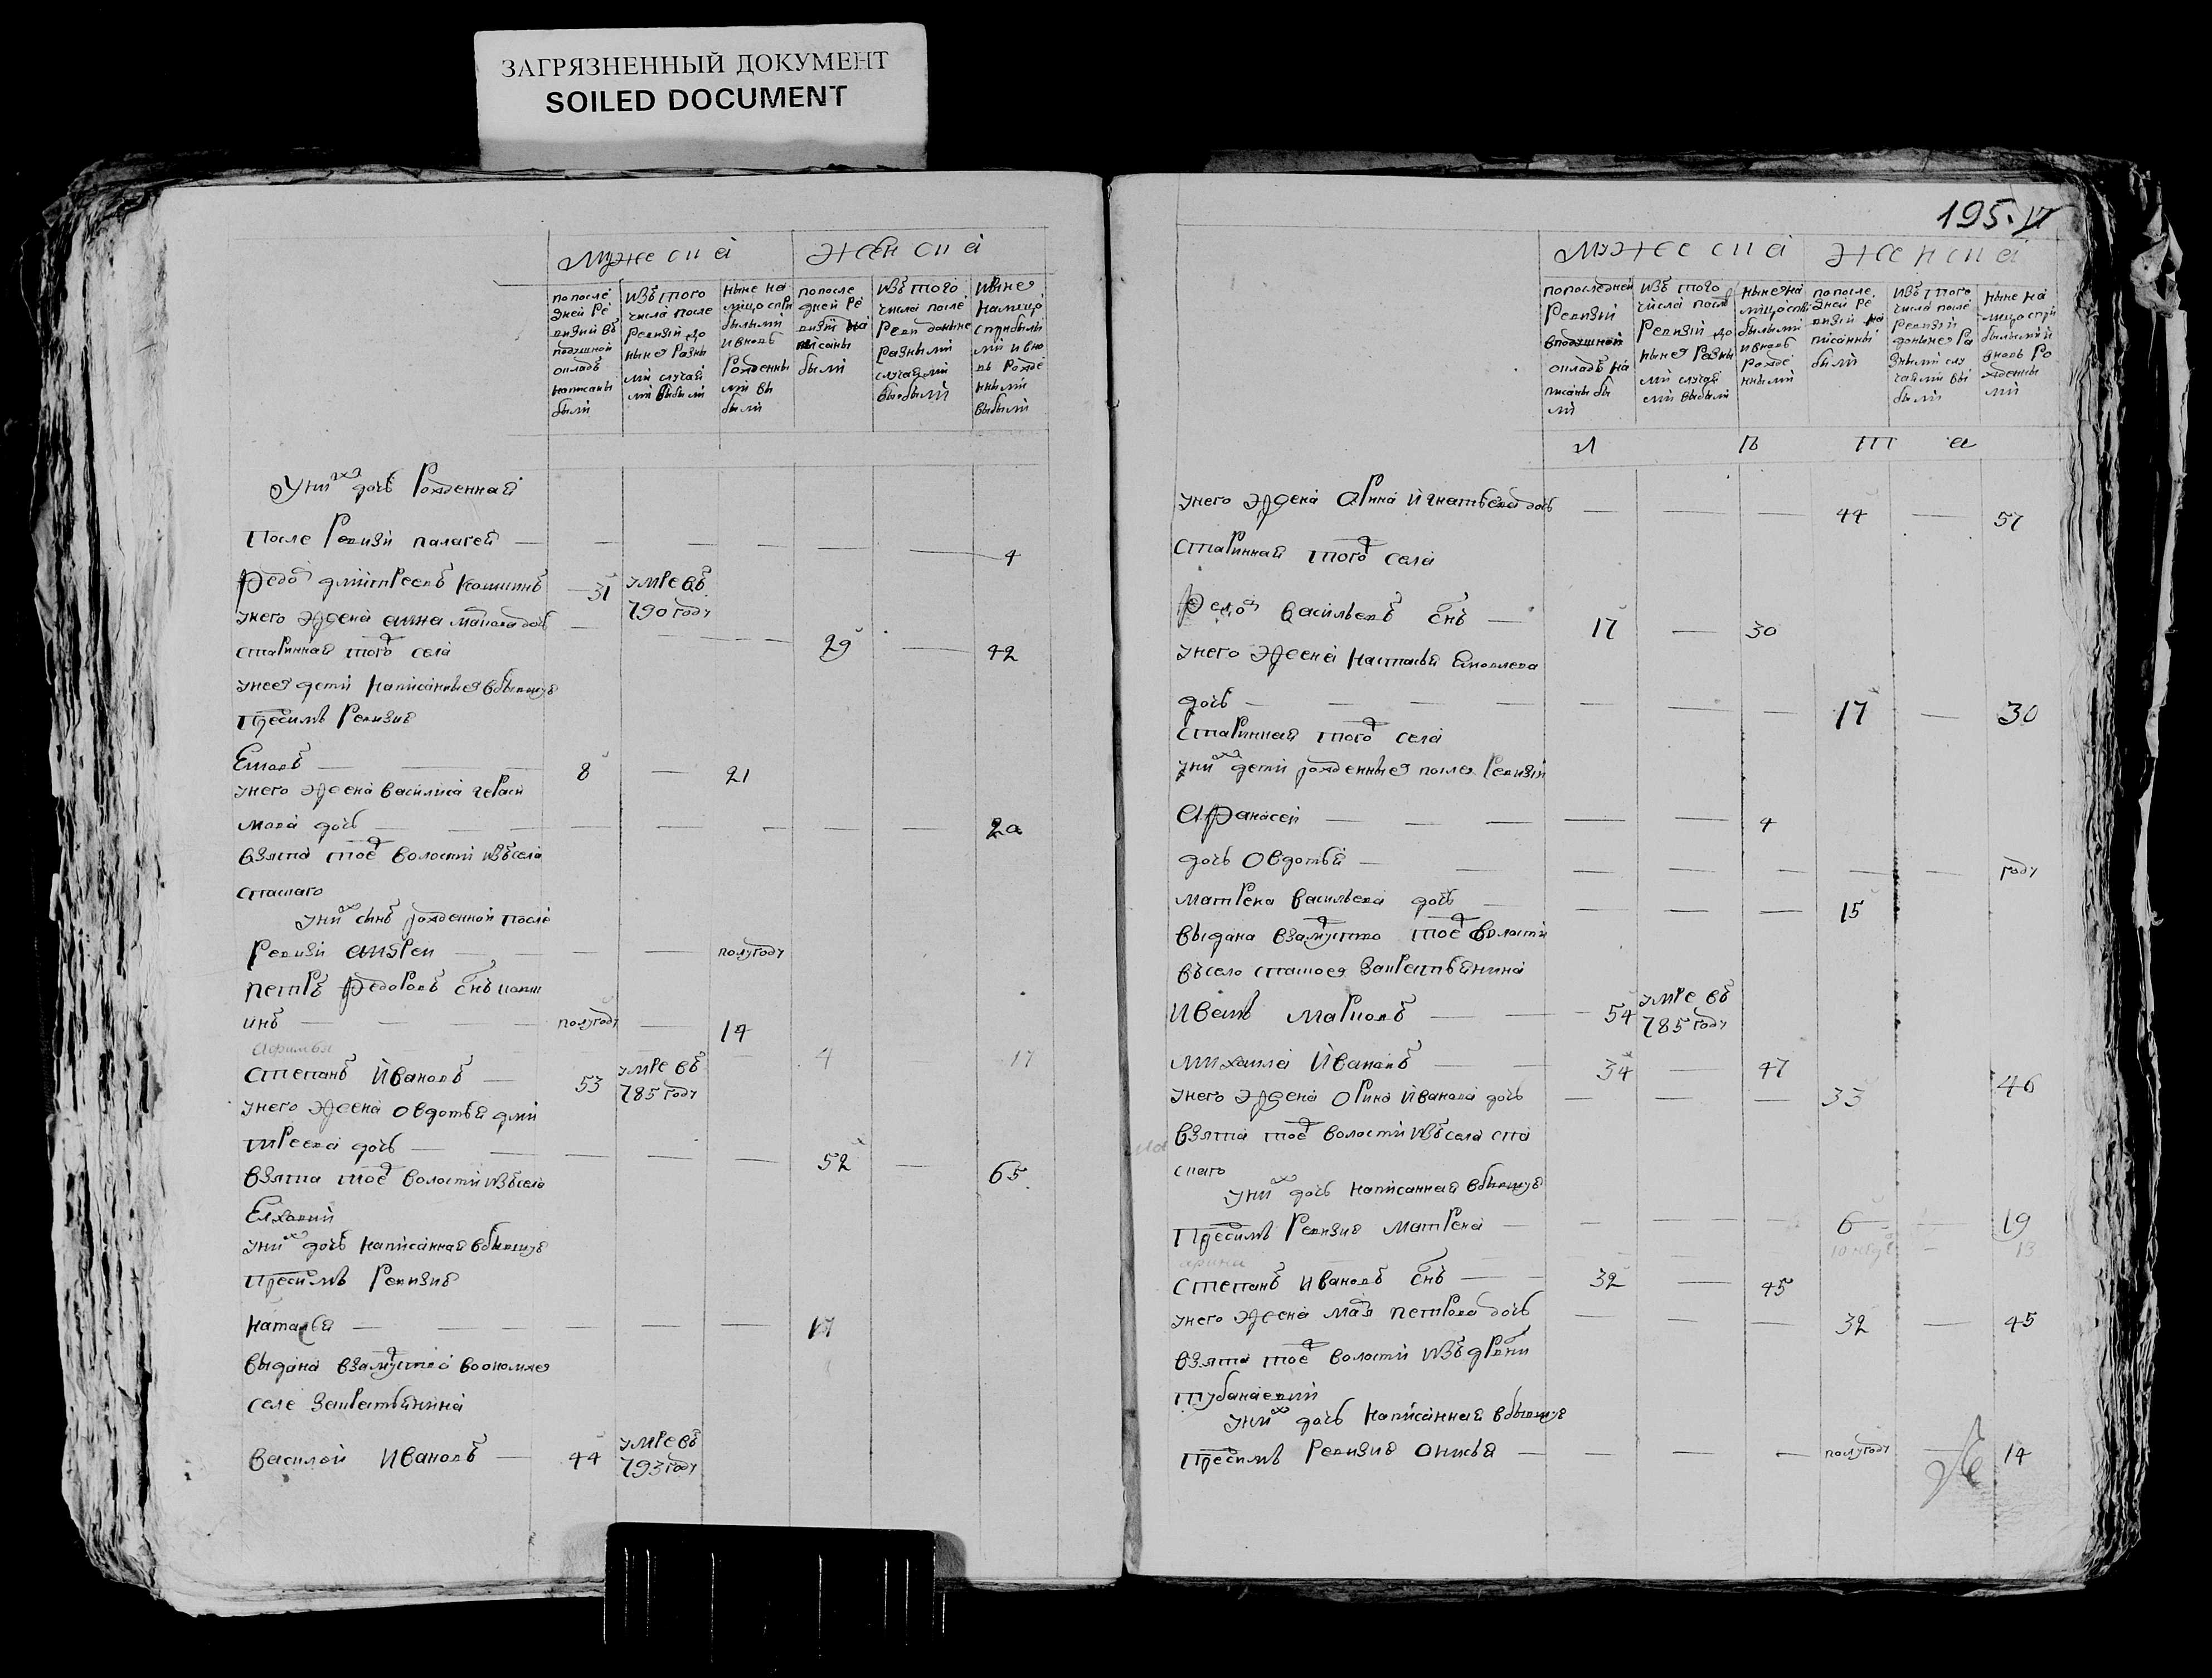 ЗАГРЯЗНЕННЫЙ ДОКУМЕНТ
SOILED DOCUMENT
Мужеска Женска
по после
дней ре
визии въ
подушной
окладъ
написаны
были
изъ того
числа после
ревизий до
ныне разны
ми случая
ми выбыли
ныне на
лицо с при
былыми
и вновь
рожденны
ми
были
по после
дней ре
визии на
писаны
были
изъ того
числа после
реви до ныне
разными
случаеми
выбыли
ныне
налицо
с прибылы
ми и вно
въ рожде
нными
выбыли
У них дочь рожденная
после ревизи палагея — — — — — — 4
Федоръ дмитреевъ кошинъ 31 умре въ
790 году
у него жена анна дочь
стариннай тогоже села — — 29 — 42
у нее дети написанныя в бывшую
пред симъ ревизию
8 — 21
у него жена василиса гераси
мова дочь — — — — — — 20
взята тоеже волости изъ села
спаскаго
у них сынъ рожденной после
ревизи андреи — — — полугоду
петръ федоровъ снъ кош
инъ — — — полугоду — 14
афимья 4 17
степанъ Ивановъ — 53 умре въ
785 году
у него жена овдотья дми
треева дочь — — — — 52 — 65
взята тоеже волости изъ села
Елховки
у них дочь написанная в бывшую
пред симъ ревизию
наталья — — — — — 17
выдана взамуство во ономже
селе за крестьянина
василей Ивановъ — 44 умре въ
793 году
195.
Мужеска Женска
по последней
ревизий
в подушной
окладъ на
писаны бы
ли
изъ того
числа посл
ревизий до
ныне разны
ми случая
ми выбыли
ныне на
лицо с при
былыми
и вновь
рожде
нными
по после
дней ре
визии на
писаны
были
изъ того
числа после
ревизии
до ныне ра
зными слу
чаями вы
были
ныне на
лицо с при
былыми и
вновь ро
жденны
ми
у него жена Арина Игнатьева дочь — — — 44 — 57
стариннай тогоже села
Федоръ васильевъ снъ — 17 — 30
у него жена настасья Яковлева
дочь — — — — — — 17 — 30
стариннай тогоже села
у них дети рожденныя после ревизии
Афанасей — — — — — 4
дочь Овдотья — — — — — — году
матрена васильева дочь — — — — 15
выдана взамуство тоеже волости
въ село спаское за крестьянина
Иванъ марковъ — — 54 умре въ
785 году
михаила Ивановъ — — 34 — 47
у него жена Орина Иванова дочь — — — 33 46
взята тоеже волости изъ села спа
скаго
у них дочь написанная в бывшую
пред симъ ревизию матрена — — — — 6 — 19
арина — 13
степанъ ивановъ снъ — — 32 — 45
у него жена петрова дочь — — — 32 — 45
взята тоеже волости изъ дрвни
тубанаевки
у них дочь написанная в бывшую
пред симъ ревизию онисья — — — — полугоду — 14